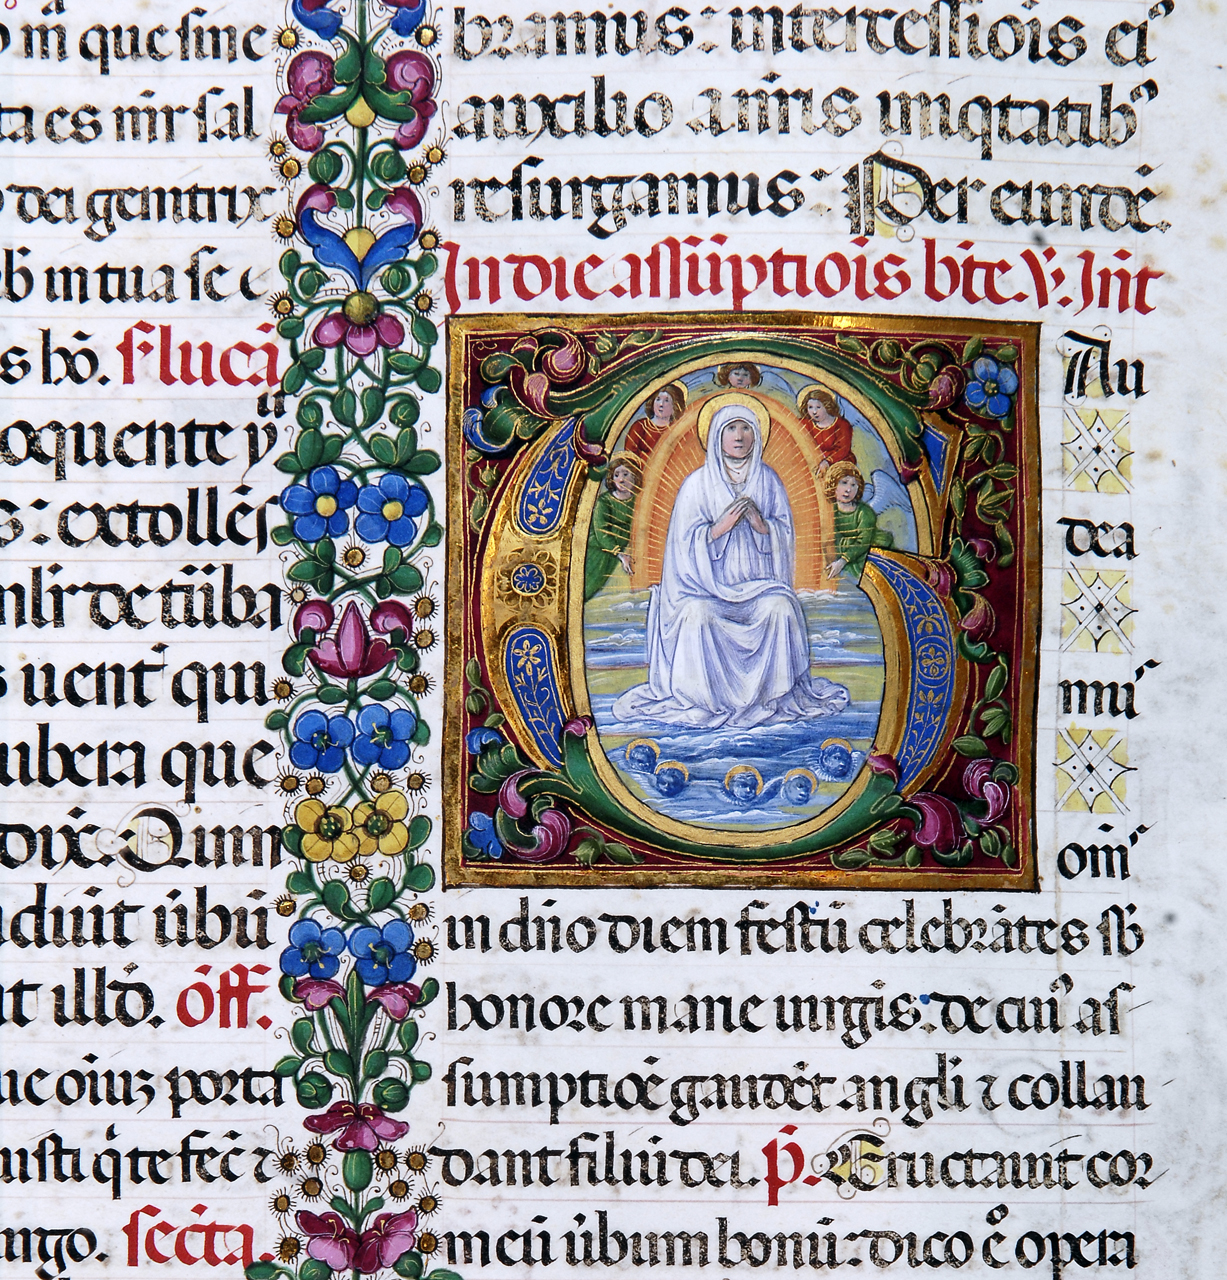 m̄ que sine
ta es nr̄ sal
dei genitrix
ob̄ in tua fe c
s hō. s. lucā
oquente y
s: extollēs
mlr̄ de tūba
s uent qui
ubera que
dix̄. Quin
diūt ūbū
it illd̄. off̄.
ue oīuꝫ porta
iusti q̄ te fec̄ ⁊
ngo. secr̄ta.
bramus: intercessiōis eiꝰ
auxilio a nr̄is iniq̄tatibꝰ
resurgamus: Per eundē.
In die assūptiōis bt̄e. V̄. Int̄
G Au
dea
muꝰ
om̄s
in dn̄o diem festū celebrātes sb̄
honore marie uirgīs: de cuiꝰ as
sumptiōe gaudēt angli ⁊ collau
dant filiū dei. p̄. Eructauit cor
meū ūbum bonū: dico ēꝰ opera